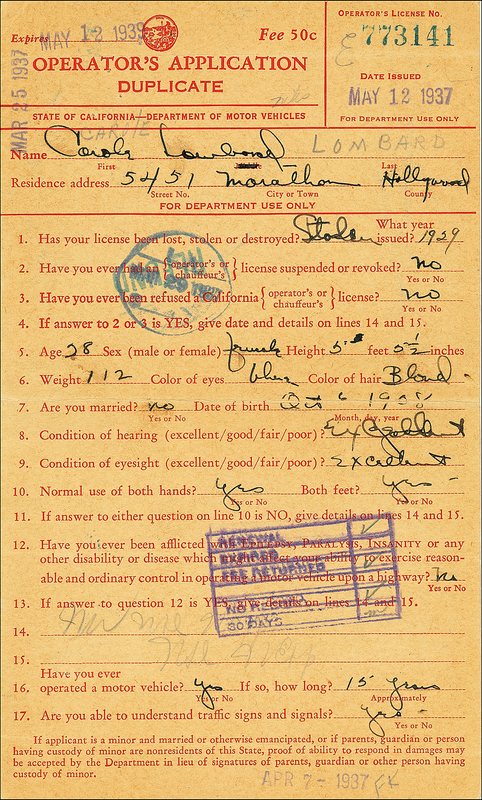 Expires MAY 12 1939 Fee 50c
OPERATOR'S LICENSE No.
E 773141
MAR 25 1937
OPERATOR'S APPLICATION
DUPLICATE
DATE ISSUED
MAY 12 1937
STATE OF CALIFORNIA—DEPARTMENT OF MOTOR VEHICLES
FOR DEPARTMENT USE ONLY
CAROLE LOMBARD
Name Carole Lombard
First Middle Last
Residence address 5451 Marathon Hollywood
Street No. City or Town County
FOR DEPARTMENT USE ONLY
1. Has your license been lost, stolen or destroyed? Stolen What year issued? 1929
2. Have you ever had an {operator's or chauffeur's} license suspended or revoked? no
Yes or No
3. Have you ever been refused a California {operator's or chauffeur's} license? no
Yes or No
4. If answer to 2 or 3 is YES, give date and details on lines 14 and 15.
5. Age 28 Sex (male or female) female Height 5 feet 5½ inches
6. Weight 112 Color of eyes blue Color of hair Blond
7. Are you married? no Date of birth Oct 6 1908
Yes or No Month, day, year
8. Condition of hearing (excellent/good/fair/poor)? Excellent
9. Condition of eyesight (excellent/good/fair/poor)? Excellent
10. Normal use of both hands? yes Both feet? yes
Yes or No Yes or No
11. If answer to either question on line 10 is NO, give details on lines 14 and 15.
12. Have you ever been afflicted with EPILEPSY, PARALYSIS, INSANITY or any
other disability or disease which might affect your ability to exercise reason-
able and ordinary control in operating a motor vehicle upon a highway? no
Yes or No
RENEWAL
EXPIRED
NOT RETURNED
NO RECORD
30 DAYS
13. If answer to question 12 is YES, give details on lines 14 and 15.
14.
15.
16. Have you ever operated a motor vehicle? yes If so, how long? 15 years
Yes or No Approximately
17. Are you able to understand traffic signs and signals? yes
Yes or No
If applicant is a minor and married or otherwise emancipated, or if parents, guardian or person
having custody of minor are nonresidents of this State, proof of ability to respond in damages may
be accepted by the Department in lieu of signatures of parents, guardian or other person having
custody of minor.
APR 7 - 1937